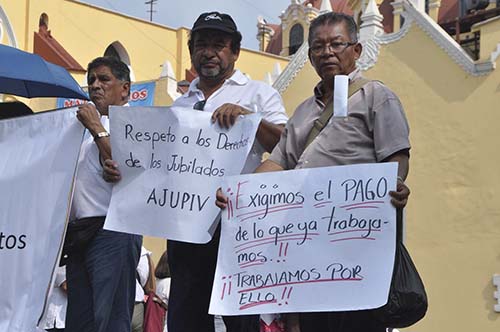 Respeto a los Derechos
de los Jubilados
AJUPIV
¡¡Exigimos el PAGO
de lo que ya trabaja-
mos.!!
¡¡TRABAJAMOS POR
ELLO!!